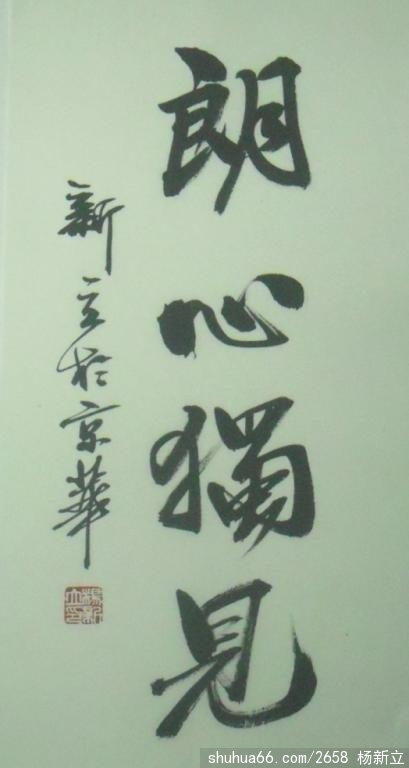 朗心獨見
新立於京華
楊新立印
shuhua66.com/2658 杨新立